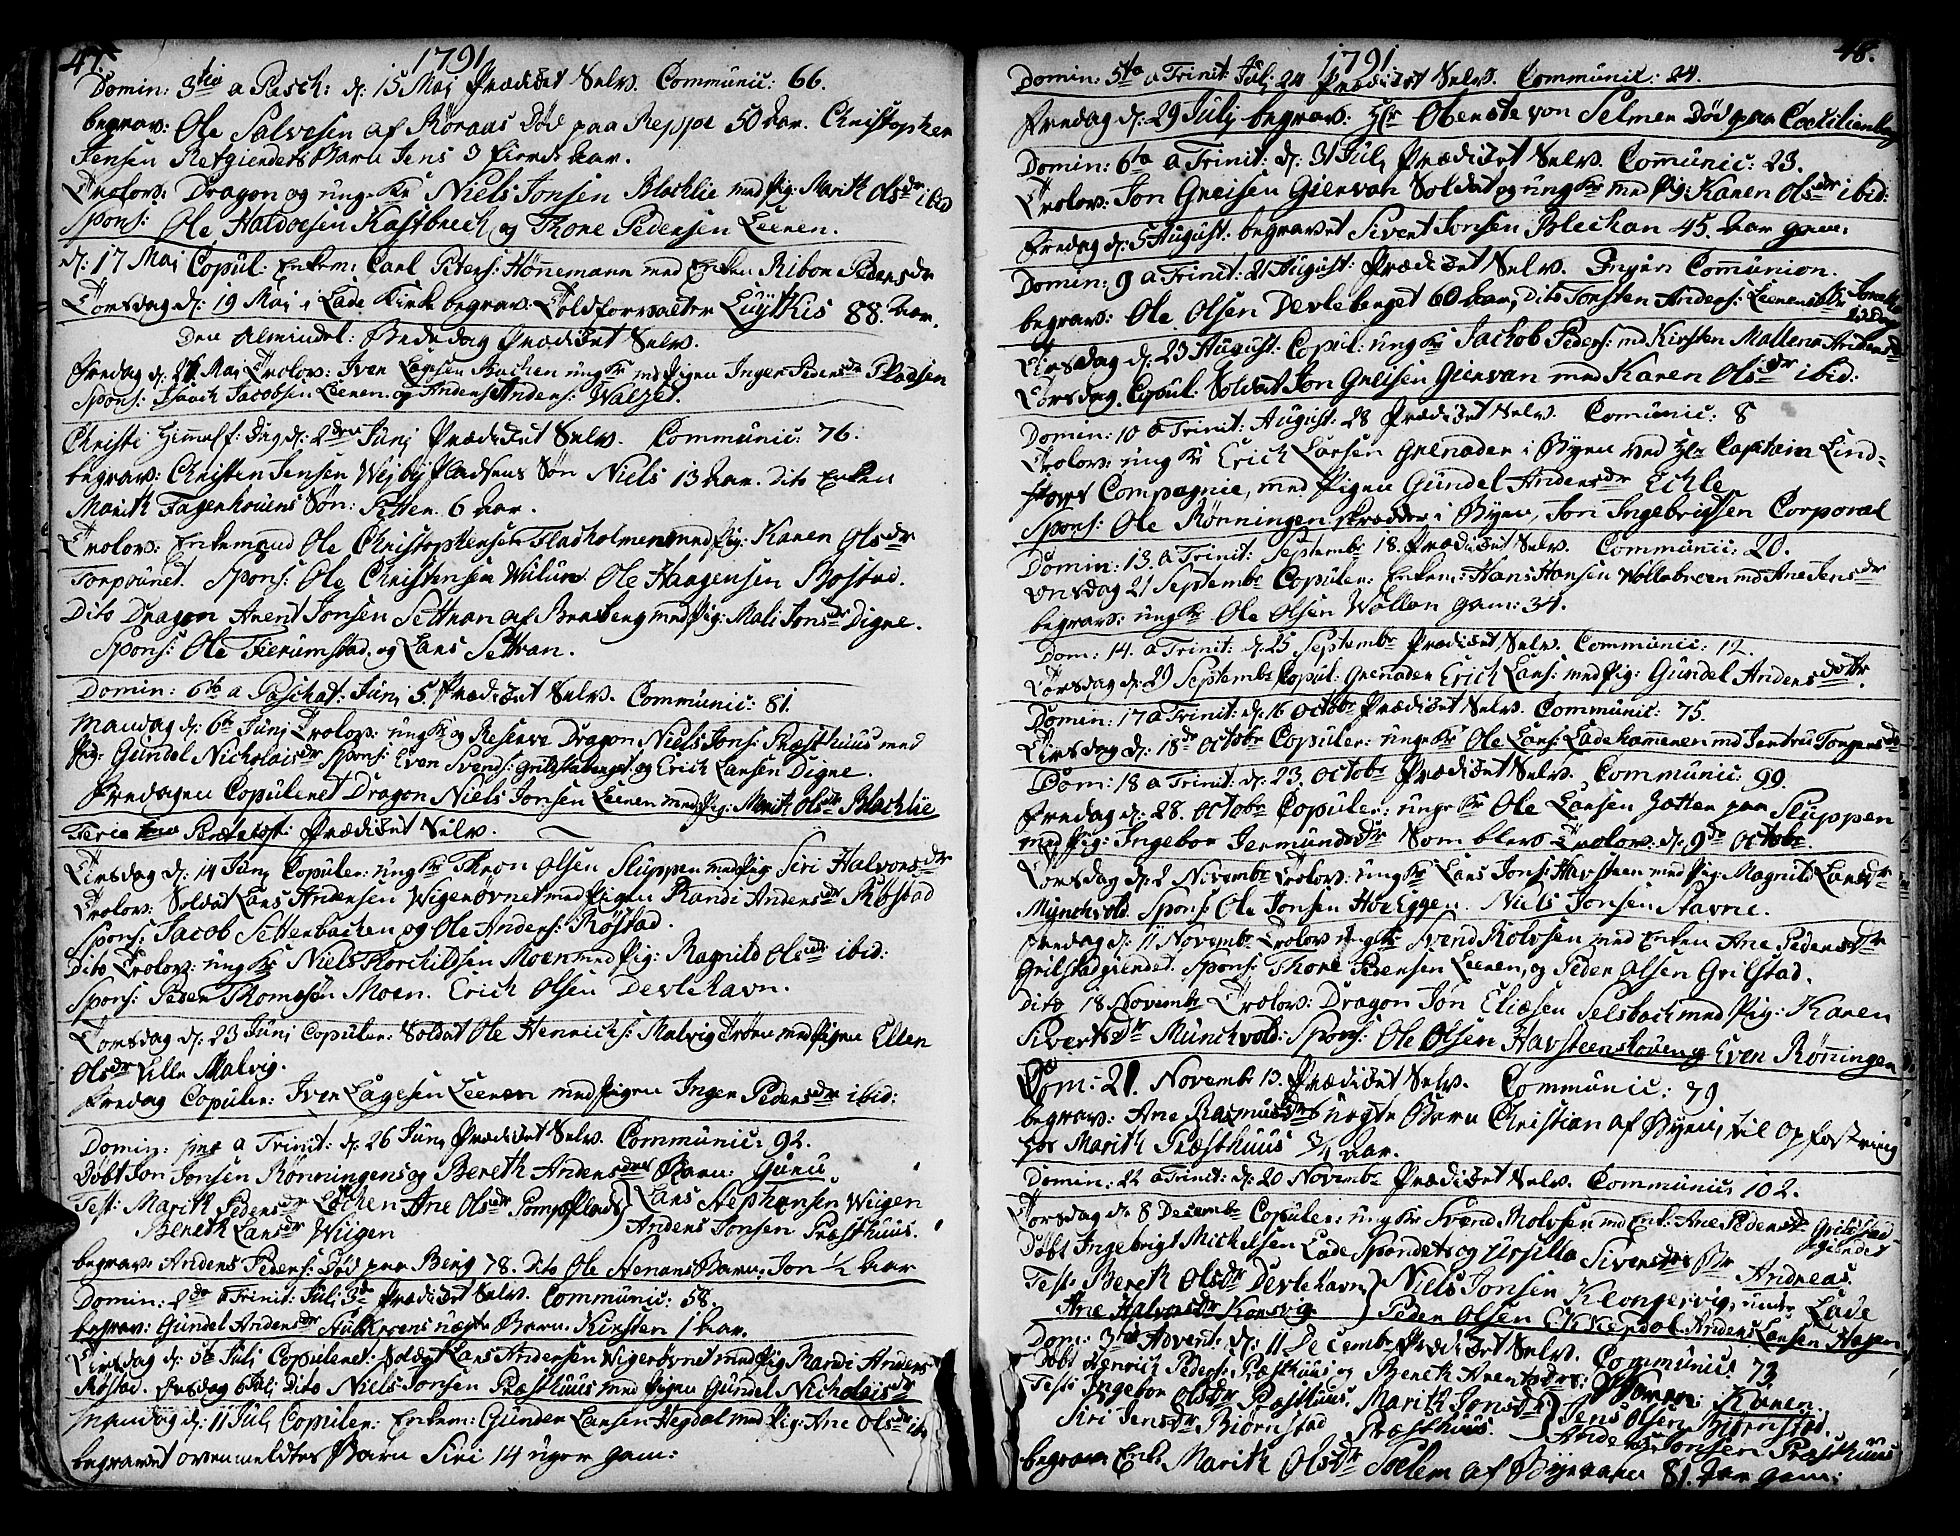 47.
1791
Domin: 3tia a Pasch: d: 15 Maj Prædiket Selv. Communic: 66.
begrav: Ole Salvesen af Röraas Död paa Reppe 50 Aar. Christopher
Jensen Retgierdets Barn Jens 3 fierd: Aar.
Trolov: Dragon og ung Kr Niels Jonsen Blachlie med Pig: Marith Olsdr ibid
Spons: Ole Haldorsen Kastbrech og Thore Pedersen Leeren.
d: 17 Maj Copul: Enkem: Carl Peters: Hönnemann med Enken Ribore Pedersdr
Torsdag d: 19 Maj i Lade Kirk begrav: Toldforvalter Luytkis 88. Aar.
Den Almindel: Bededag Prædiket Selv.
Fredag d: 27 Maj Trolov: Iver Larsen Bachen ung Kr md Pigen Inger Pedersdr Pladsen
Spons: Jacob Jacobsen Leeren og Anders Anders: Walset.
Christi Himmelf: Dag d: 2den Junj Prædiket Selv. Communic: 76.
begrav: Christen Jensen Wejby Pladsens Sön Niels 13 Aar. Dito Enken
Marith Fagerhouns Sön: Petter 6 Aar.
Trolov: Enkemand Ole Christophersen Fladholmen med Pig: Karen Olsdr
Torpounet. Spons: Ole Christensen Wiilun. Ole Haagensen Rostad.
Dito Dragon Arent Jonsen Settran af Bratberg med Pig: Mali Jonsdr Digre.
Spons: Ole Fierumstad og Lars Settran.
Domin: 6ta a Paschat: Junj 5. Prædiket Selv. Communic: 81.
Mandag d: 6te Junj Trolov: ung Kr og Reserve Dragon Niels Jons: Præsthuus med
Pig: Gundel Nicholaisdr Spons: Even Svends: Grilstaberget og Erich Larsen Digre.
Fredagen Copuleret Dragon Niels Jonsen Leeren med Pig: Marit Olsdr Blachlie
Feria 2den Pentecost: Prædiket Selv.
Tirsdag d: 14 Junj Copuler: ung Kr Thron Olsen Sluppen med Pig Siri Halvorsdr
Trolov: Soldat Lars Andersen Wigerövnet med Pigen Randi Andersdr Röstad
Spons: Jacob Settenbachen og Ole Anders: Röstad.
Dito Trolov: ung Kr Niels Thorchildsen Moen med Pig: Ragnild Olsdr ibid:
Spons: Peder Thomesön Moen. Erich Olsen Devlehavn.
Torsdag d: 23 Junj Copuler: Soldat Ole Henrichs: Malvig Tröen med Pigen Ellen
Olsdr Lille Malvig.
Fredag Copuler: Iver Lagesen Leeren med Pigen Inger Pedersdr ibid:
Domin: 1ma a Trinit: d: 26 Junj Prædiket Selv. Communic: 92.
Döbt Jon Jonsen Rönningens og Bereth Andersdrs Barn: Guru
Test: Marith Pedersdr Lochen Ane Olsdr Pompeplads } Lars Stephansen Wiigen
Bereth Larsdr Wiigen Anders Jonsen Præsthuus.
begrav: Anders Peders: Död paa Berg 78. Dito Ole Stenans Barn: Jon 1/2 Aar
Domin: 2da a Trinit: Julj 3de Prædiket Selv. Communic: 58.
begrav: Gundel Andersdr Hulkerens uægte Barn: Kirsten 1 Aar.
Tirsdag d: 5te Julj Copuleret: Soldat Lars Andersen Wigerövnet med Pig: Randi Anders
Röstad. Onsdag 6 Julj Dito Niels Jonsen Præsthuus med Pigen Gundel Nicholaisdr
Mandag d: 11 Julj Copuler: Enkem: Gunder Larsen Hegdal med Pig: Ane Olsdr ib
begravet ovenmeldtes Barn Siri 14 uger gam:
48.
1791
Domin: 5ta a Trinit: Julj 24 Prædiket Selv. Communic: 24.
Fredag d: 29 Julj begrav: Hr Oberste von Selmer Död paa Coecilienberg
Domin: 6ta a Trinit: d: 31 Julj Prædiket Selv. Communic: 23.
Trolov: Jon Greisen Giervan Soldat og ung Kr med Pig: Karen Olsdr ibid:
Fredag d: 5 August: begravet Sivert Jonsen Blechan 45. Aar gam:
Domin: 9 a Trinit: 21 August: Prædiket Selv. Ingen Communion.
begrav: Ole Olsen Devleberget 60 Aar, Dito Torsten Anders: Leerens Br
Tirsdag d: 23 August: Copul: ung Kr Jachob Peders: md Kirsten Mallena
Torsdag. Copul: Soldat Jon Greisen Giervan med Karen Olsdr ibid:
Domin: 10 a Trinit: August: 28 Prædiket Selv. Comunic: 8
Trolov: ung Kr Erich Larsen Grenader i Byen ved Hr Captain Lind-
Compagnie, med Pigen Gundel Andersdr Eckle
Spons: Ole Rönningen skrædder i Byen, Jon Ingebrigtsen Corporal
Domin: 13. a Trinit: Septembr 18. Prædiket Selv. Communic: 20.
Onsdag 21 Septembr Copuler: Enkem: Hans Hansen Wollebreen md Ane Jensdr
begrav: ung Kr Ole Olsen Wollan gam: 34.
Dom: 14. a Trinit: d: 25 Septembr Prædiket Selv. Communic: 12.
Torsdag d: 29 Septembr Copul: Grenader Erich Lars: med Pig: Gundel Andersdotr.
Domin: 17 a Trinit: d: 16 Octobr Prædiket Selv. Communic: 75.
Tirsdag d: 18de Octobr Copuler: ung Kr Ole Lars: Ladehammeren md Jertru Torgersdr
Dom: 18 a Trinit: d: 23. Octobr Prædiket Selv. Communic: 99.
Fredag d: 28. Octobr Copuler: ung Kr Ole Larsen Hatten paa Sluppen
med Pig: Ingebor Jermundsdr Som blev Trolov: d: 9de Octobr.
Torsdag d: 2 Novembr Trolov: ung Kr Lars Jons: Havsteen med Pig: Magnild Larsdr
Münchvold. Spons: Ole Jonsen Hoeeggen. Niels Jonsen Stavne.
Fredag d: 11 Novembr Trolov: ung Kr Svend Rolvsen med Enken Ane Pedersdr
Grilstadgierdet. Spons: Thore Pedersen Leeren, og Peder Olsen Grilstad.
Dito 18 Novembr Trolov: Dragon Jon Eliæsen Selsbach med Pig: Karen
Sivertsdr Münckvold: Spons: Ole Olsen Havsteenskouen og Even Rönningen
Dom: 21. Novembr 13. Prædiket Selv. Communic: 79
begrav: Ane Rasmusdrs uægte Barn Christian af Byen, til Opfostring
hos Marith Præsthuus 3/4 Aar.
Domin: 22 a Trinit: d: 20 Novembr Prædiket Selv. Communic: 102.
Torsdag d: 8 Decembr Copuler: ung Kr Svend Rolvsen md Enk: Ane Pedersdr Grilstad-
gierdet
Döbt Ingebrigt Michelsen Lade Spondets og Ursilla Siversdrs Br Andreas.
Test: Bereth Olsdr Devlehavn } Niels Jonsen Klongervig, under Lade
Ane Halvorsdr Korsvig Peder Olsen Ekkerdal Anders Larsen Hagen
Dom: 3tia Advent: d: 11 Decembr Prædiket Selv. Communic: 73
Döbt Henrich Peders: Præsthuus og Bereth Arentsdrs: Barn: Karen.
Test: Ingebor Olsdr Præsthuus, Marith Jonsdr } Jens Olsen Björnstad.
Siri Jensdr Björnstad Præsthuus. Anders Jonsen Præsthuus
begrav: Enk: Marith Olsdr Soelem af Byeaasen 81. Aar gam: